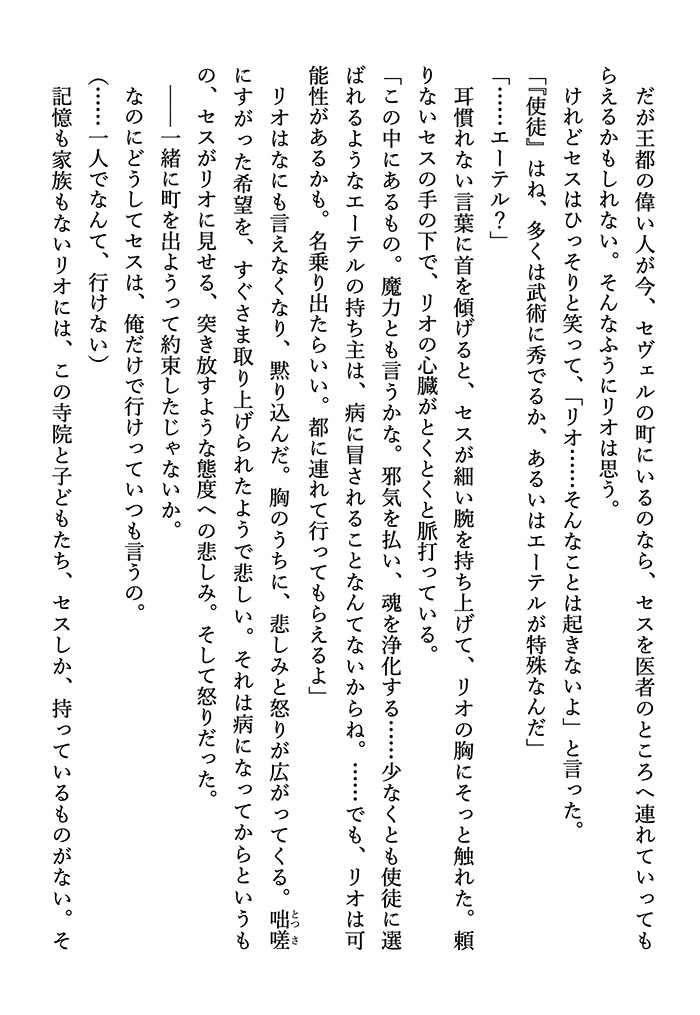 だが王都の偉い人が今、セヴェルの町にいるのなら、セスを医者のところへ連れていっても
らえるかもしれない。そんなふうにリオは思う。
　けれどセスはひっそりと笑って、「リオ……そんなことは起きないよ」と言った。
「『使徒』はね、多くは武術に秀でるか、あるいはエーテルが特殊なんだ」
「……エーテル？」
　耳慣れない言葉に首を傾げると、セスが細い腕を持ち上げて、リオの胸にそっと触れた。頼
りないセスの手の下で、リオの心臓がとくとくと脈打っている。
「この中にあるもの。魔力とも言うかな。邪気を払い、魂を浄化する……少なくとも使徒に選
ばれるようなエーテルの持ち主は、病に冒されることなんてないからね。……でも、リオは可
能性があるかも。名乗り出たらいい。都に連れて行ってもらえるよ」
　リオはなにも言えなくなり、黙り込んだ。胸のうちに、悲しみと怒りが広がってくる。咄嗟
とっさ
にすがった希望を、すぐさま取り上げられたようで悲しい。それは病になってからというも
の、セスがリオに見せる、突き放すような態度への悲しみ。そして怒りだった。
　――一緒に町を出ようって約束したじゃないか。
　なのにどうしてセスは、俺だけで行けっていつも言うの。
（……一人でなんて、行けない）
　記憶も家族もないリオには、この寺院と子どもたち、セスしか、持っているものがない。そ